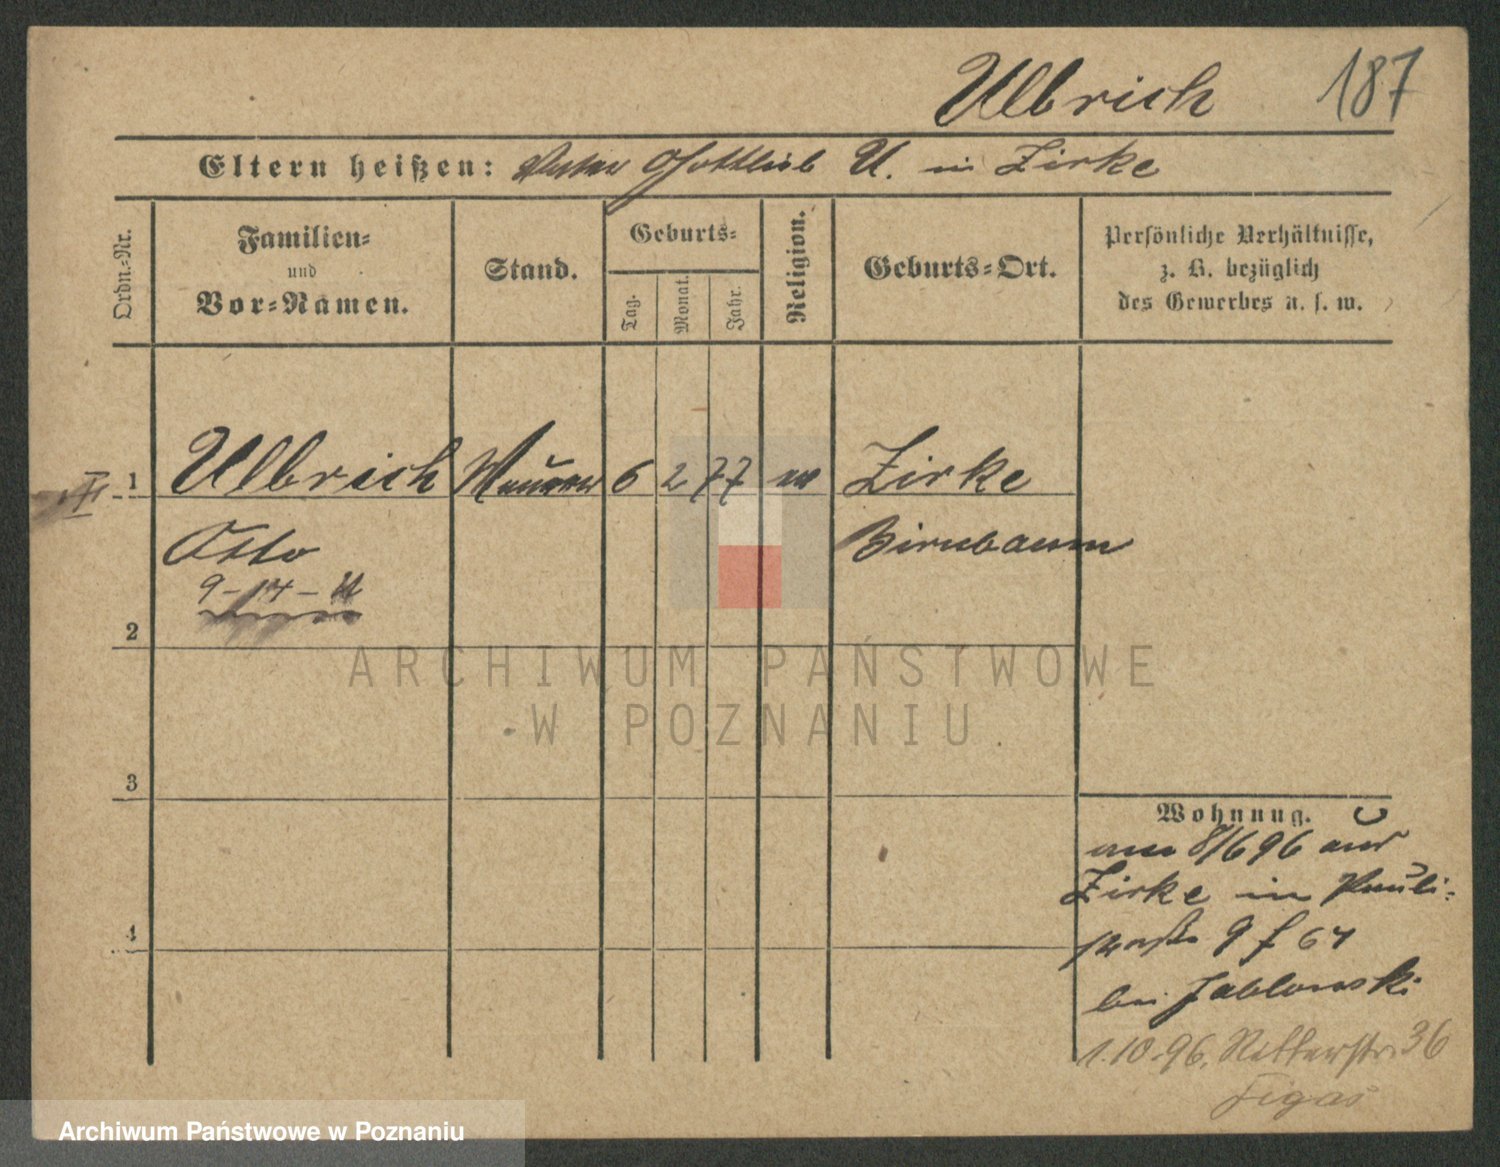 Ulbrich 187
Eltern heißen: Vater Gottlieb U. in Zirke
Ordn.-Nr.
Familien-
und
Vor-Namen.
Stand.
Geburts-
Tag.
Monat.
Jahr.
Religion.
Geburts-Ort.
Persönliche Verhältnisse,
z. B. bezüglich
des Gewerbes u. s. w.
1 Ulbrich Maurer 6 2 77 Zirke
Otto Birnbaum
2
3
4
Wohnung.
am 8/6 96 aus
Zirke in Pauli-
straße 9 f 64
bei Jablonski
1.10.96. Ritterstr. 36
Figas
ARCHIWUM PAŃSTWOWE
W POZNANIU
Archiwum Państwowe w Poznaniu